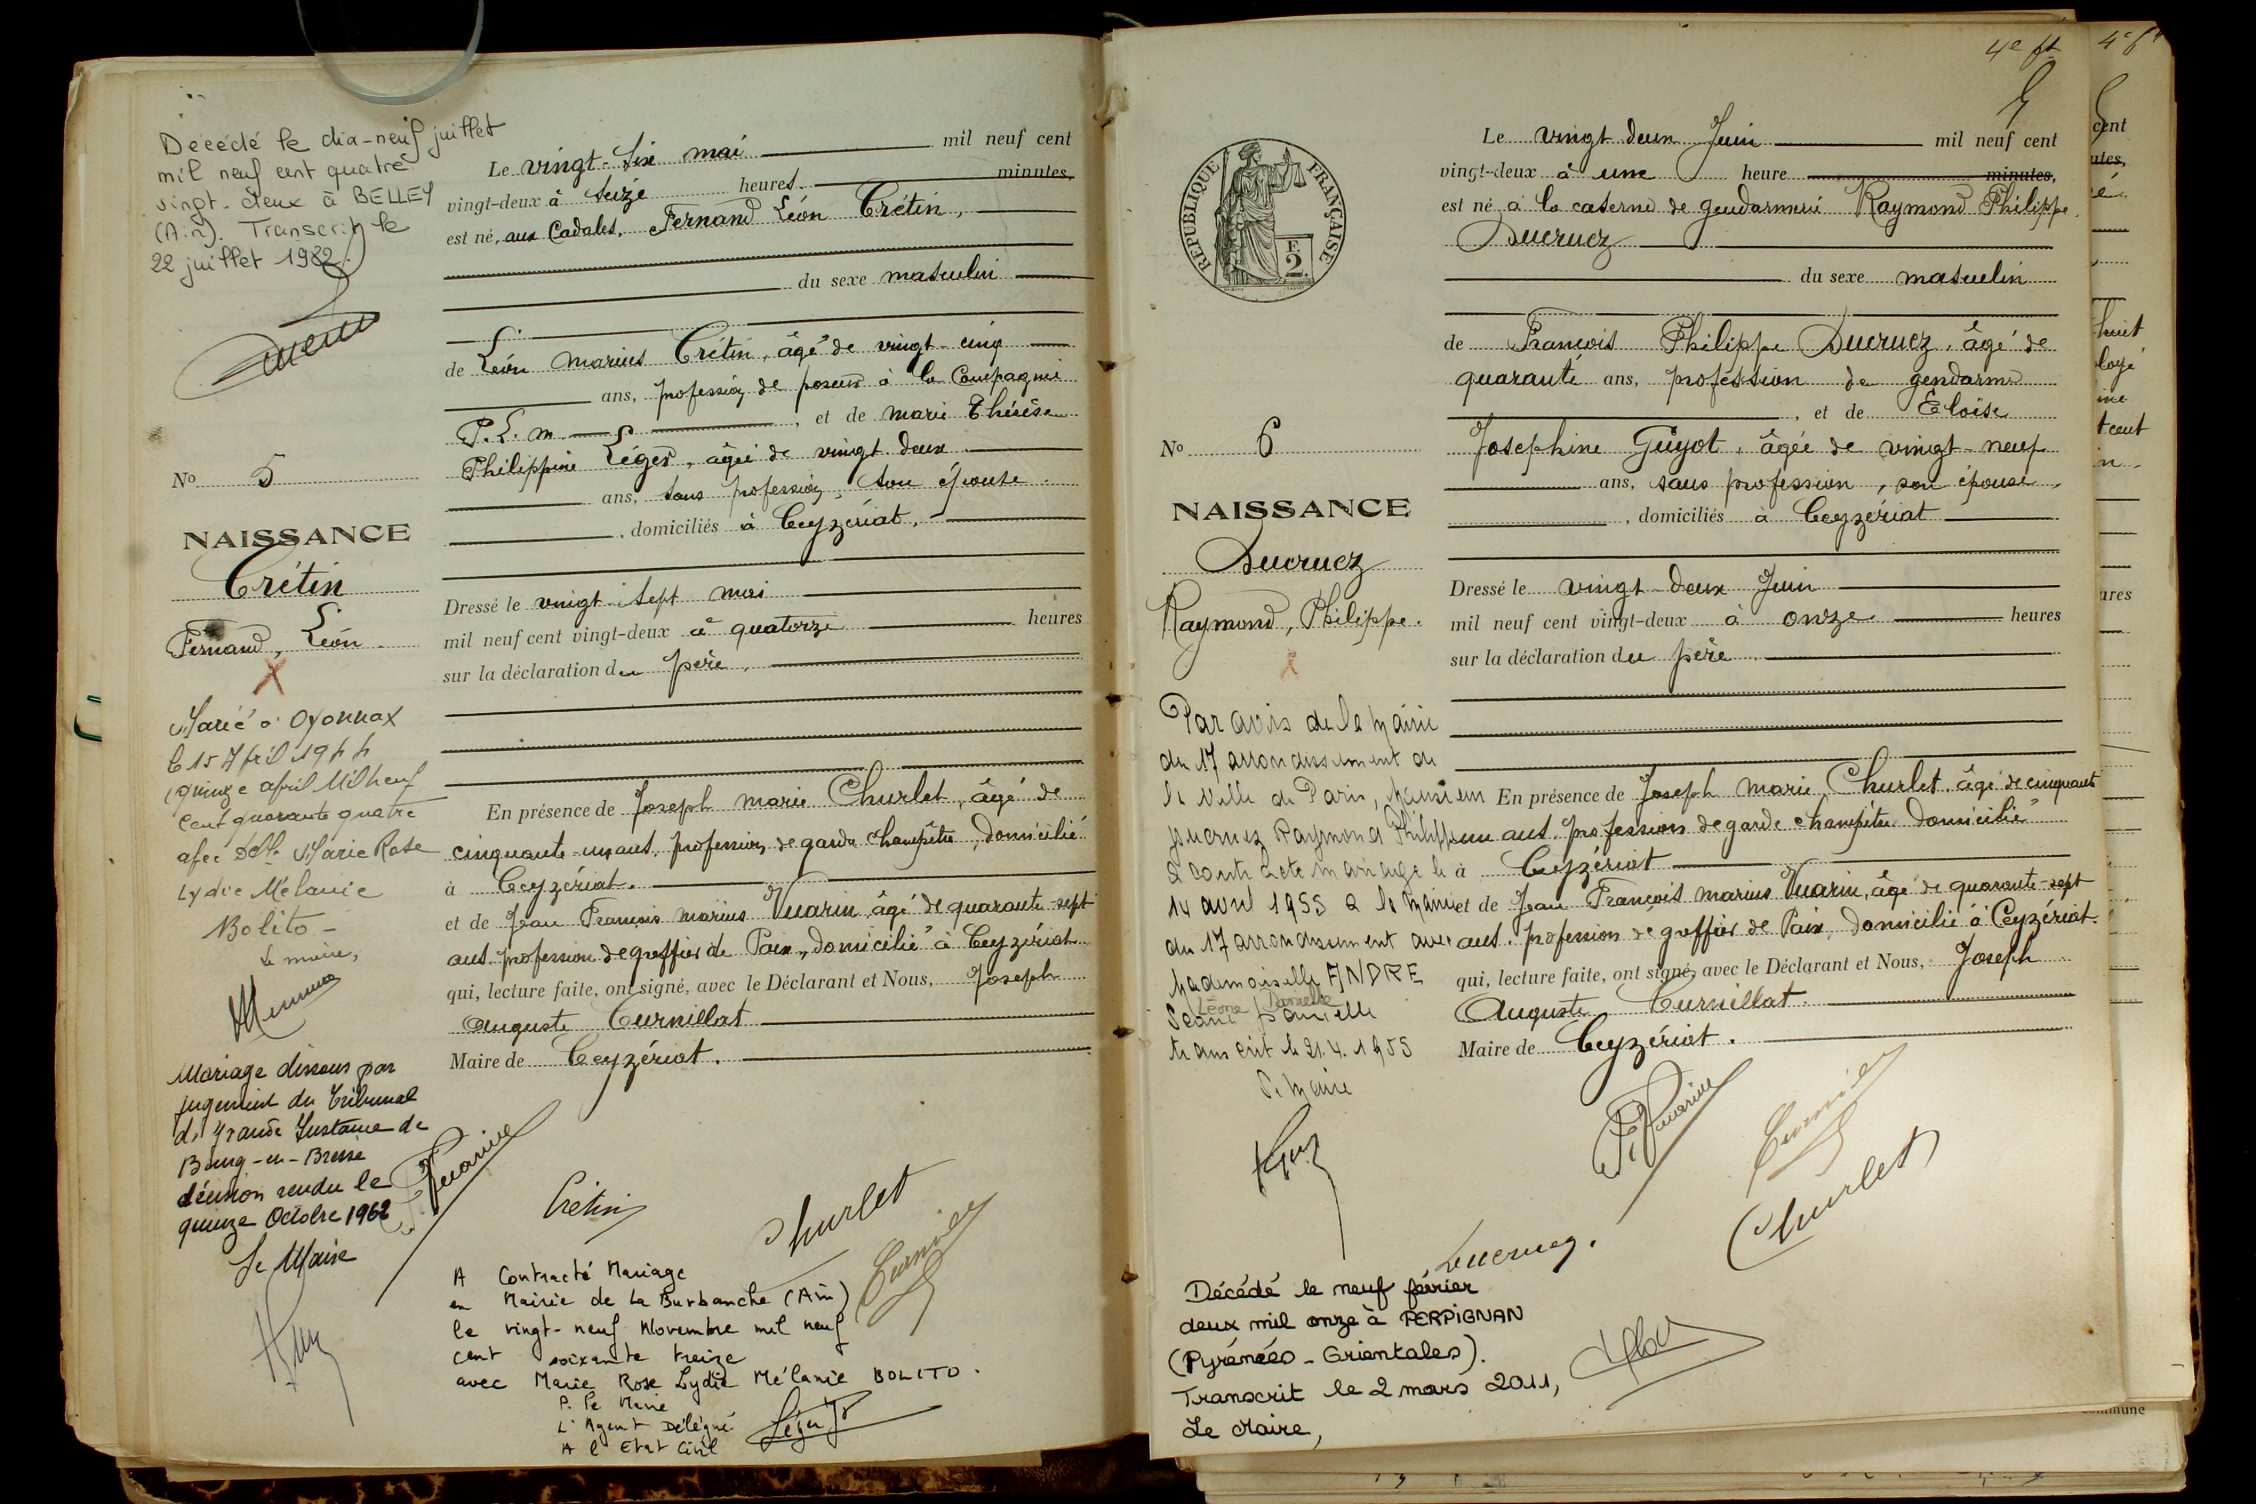 Décédé le dix-neuf juillet
mil neuf cent quatre
vingt-deux à BELLEY
(Ain). Transcrit le
22 juillet 1982.
No 5
NAISSANCE
Crétin
Fernand, Léon.
X
Marié à Oyonnax
le 15 Avril 1944
(quinze avril Mil neuf
cent quarante quatre
avec Delle Marie Rose
Lydie Mélanie
Bolito -
Le maire,
Mariage dissous par
jugement du Tribunal
de Grande Instance de
Bourg-en-Bresse
décision rendu le
quinze Octobre 1962
Le Maire
Le vingt-six mai mil neuf cent
vingt-deux à seize heures minutes,
est né, aux Cadales, Fernand Léon Crétin,
du sexe masculin
de Léon Marius Crétin, âgé de vingt-cinq
ans, profession de poseur à la Compagnie
P.L.M. , et de Marie Thérèse
Philippine Léger, âgée de vingt deux
ans, sans profession, son épouse.
, domiciliés à Ceyzériat.
Dressé le vingt-sept mai
mil neuf cent vingt-deux à quatorze heures
sur la déclaration du père.
En présence de Joseph Marie Churlet, âgé de
cinquante-un ans, profession de garde champêtre, domicilié
à Ceyzériat.
et de Jean François Marius Vuarin, âgé de quarante-sept
ans profession de greffier de Paix, domicilié à Ceyzériat
qui, lecture faite, ont signé, avec le Déclarant et Nous, Joseph
Auguste Curnillat
Maire de Ceyzériat.
Vuarin
Crétin
Churlet
A Contracté Mariage
en Mairie de La Burbanche (Ain)
le vingt-neuf Novembre mil neuf
cent soixante treize
avec Marie Rose Lydie Mélanie BOLITO.
P. le Maire
L'Agent Délégué
A l'Etat Civil
4e ft
RÉPUBLIQUE FRANÇAISE
F.
2
No 6
NAISSANCE
Ducruez
Raymond, Philippe.
Par avis de la Mairie
du 17 arrondissement de
la Ville de Paris, Monsieur
Ducruez Raymond Philippe
a contracté mariage le
14 avril 1955 à la Mairie
du 17 arrondissement avec
Mademoiselle ANDRE
Léone Danielle
Jeanne Danielle
transcrit le 21.4.1955
Le Maire
Le vingt deux Juin mil neuf cent
vingt-deux à une heure minutes,
est né à la caserne de gendarmerie Raymond Philippe
Ducruez
du sexe masculin
de François Philippe Ducruez, âgé de
quarante ans, profession de gendarme
, et de Eloïse
Josephine Guyot, âgée de vingt-neuf
ans, sans profession, son épouse,
, domiciliés à Ceyzériat
Dressé le vingt-deux Juin
mil neuf cent vingt-deux à onze heures
sur la déclaration du père.
En présence de Joseph Marie Churlet, âgé de cinquante
un ans, profession de garde champêtre domicilié
à Ceyzériat
et de Jean François Marius Vuarin, âgé de quarante-sept
ans, profession de greffier de Paix, domicilié à Ceyzériat.
qui, lecture faite, ont signé, avec le Déclarant et Nous, Joseph
Auguste Curnillat.
Maire de Ceyzériat.
Vuarin
Churlet
Ducruez.
Décédé le neuf février
deux mil onze à PERPIGNAN
(Pyrénées-Orientales).
Transcrit le 2 mars 2011,
Le Maire,